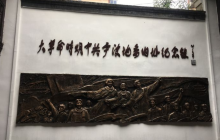 大革命时期中共宁波地委旧址纪念馆